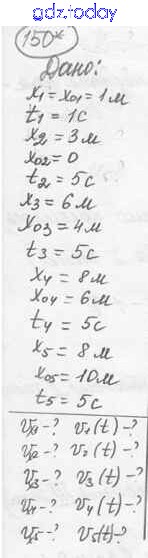 gdz.today
150*
Дано:
x₁ = x₀₁ = 1 м
t₁ = 1 с
x₂ = 3 м
x₀₂ = 0
t₂ = 5 с
x₃ = 6 м
x₀₃ = 4 м
t₃ = 5 с
x₄ = 8 м
x₀₄ = 6 м
t₄ = 5 с
x₅ = 8 м
x₀₅ = 10 м
t₅ = 5 с
v₁ - ? v₁(t) - ?
v₂ - ? v₂(t) - ?
v₃ - ? v₃(t) - ?
v₄ - ? v₄(t) - ?
v₅ - ? v₅(t) - ?